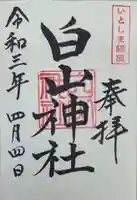 いとしま師吉
奉拝
白山神社
令和三年 四月四日